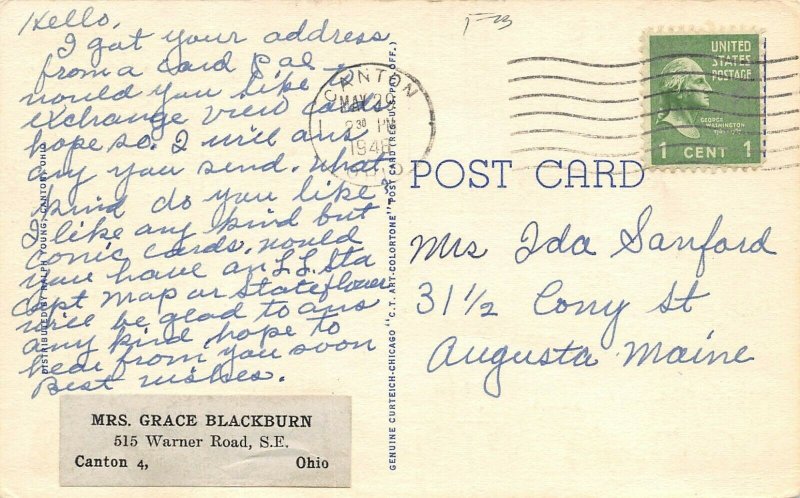 Hello,
I got your address
from a card Pal.
would you like
exchange view cards
hope so. I will ans
any you send. What
kind do you like?
I like any kind but
Comic cards. would
you have an L.L. Sta
Capt Map or Stateflower
will be glad to ans
any kind hope to
hear from you soon
Best wishes.
MRS. GRACE BLACKBURN
515 Warner Road, S.E.
Canton 4, Ohio
DISTRIBUTED BY RALPH YOUNG, CANTON, OHIO
GENUINE CURTEICH-CHICAGO "C.T. ART-COLORTONE" POST CARD (REG. U.S. PAT. OFF.)
CANTON
MAY 29
2 30 PM
1946
OHIO
UNITED
STATES
POSTAGE
GEORGE
WASHINGTON
1 CENT 1
POST CARD
Mrs Ida Sanford
31 1/2 Cony St
Augusta Maine